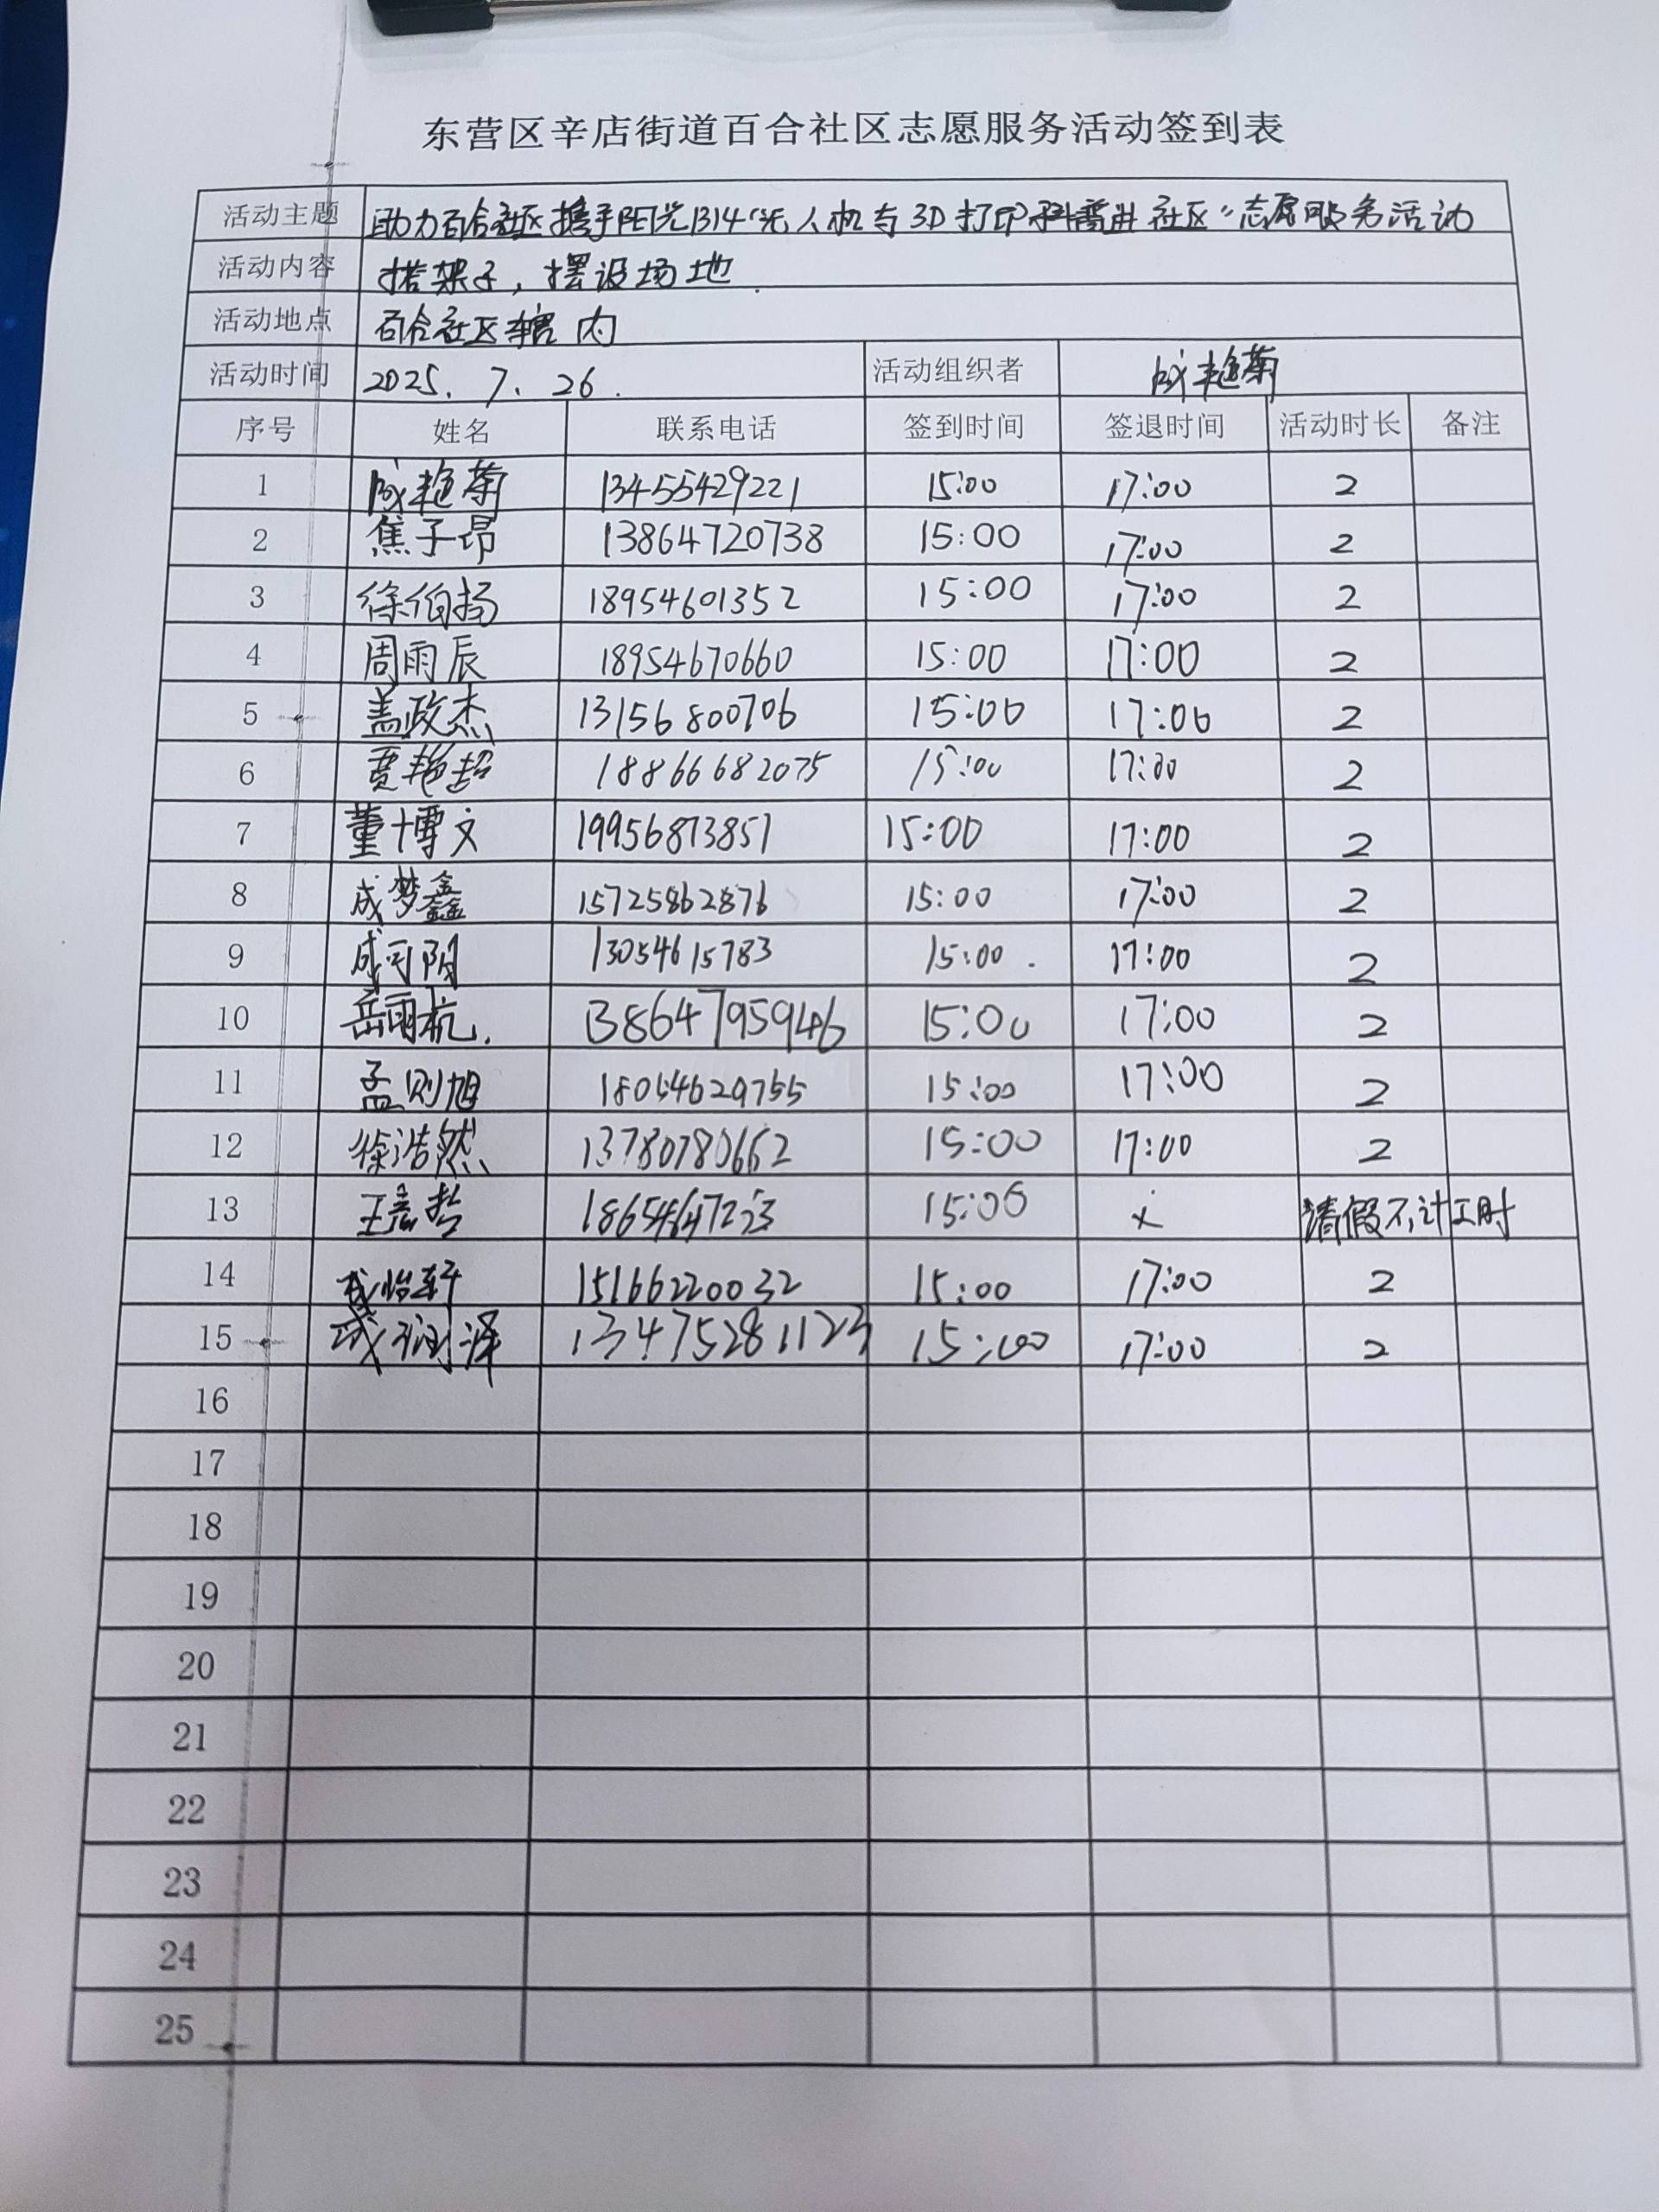 东营区辛店街道百合社区志愿服务活动签到表
活动主题 助力百合社区携手阳光1314“无人机与3D打印科普进社区”志愿服务活动
活动内容 搭架子，摆设场地.
活动地点 百合社区辖内
活动时间 2025. 7. 26. 活动组织者 成艳菊
序号 姓名 联系电话 签到时间 签退时间 活动时长 备注
1 成艳菊 13455429221 15:00 17:00 2
2 焦子昂 13864720738 15:00 17:00 2
3 徐伯扬 18954601352 15:00 17:00 2
4 周雨辰 18954670660 15:00 17:00 2
5 盖政杰 13156800706 15:00 17:00 2
6 贾艳超 18866682075 15:00 17:00 2
7 董博文 19956873851 15:00 17:00 2
8 成梦鑫 15725862876 15:00 17:00 2
9 13054615783 15:00 17:00 2
10 岳雨杭. 13864795946 15:00 17:00 2
11 孟则旭 18054629755 15:00 17:00 2
12 徐浩然 13780780652 15:00 17:00 2
13 15:00 × 请假不计工时
14 15166220032 15:00 17:00 2
15 成润泽 13475281123 15:00 17:00 2
16
17
18
19
20
21
22
23
24
25